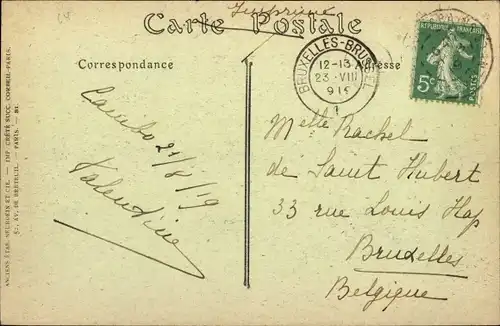 Imprimé
Carte Postale
Correspondance
Adresse
BRUXELLES-BRUSSEL
12-13
23 VIII
191
1
REPUBLIQUE FRANÇAISE
5c
POSTES
Cambo 21/8/19
Valentine
Melle Rachel
de Saint Hubert
33 rue Louis Hap
Bruxelles
Belgique
ANCIENS ÉTAB. NEURDEIN ET CIE. — IMP. CRÉTÉ SUCC. CORBEIL-PARIS.
52, AV. DE BRETEUIL. — PARIS. — BI.